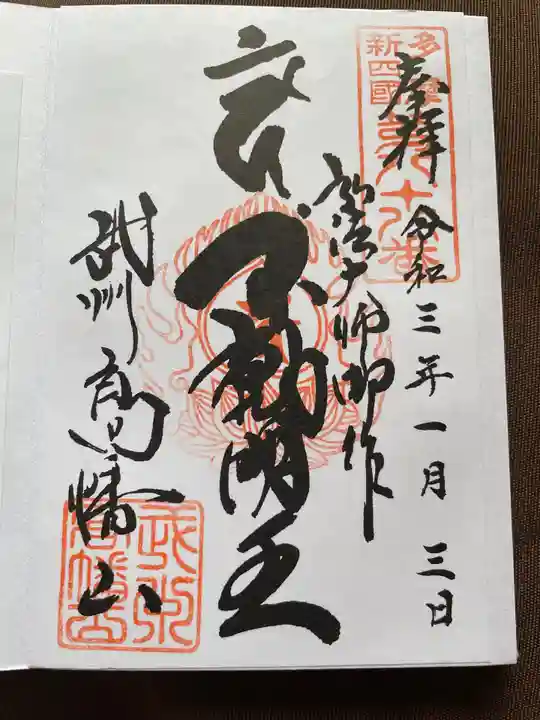 多摩
新四國
奉拝 令和三年一月三日
弘法大師御作
不動明王
武州 高幡山
武州
高幡山